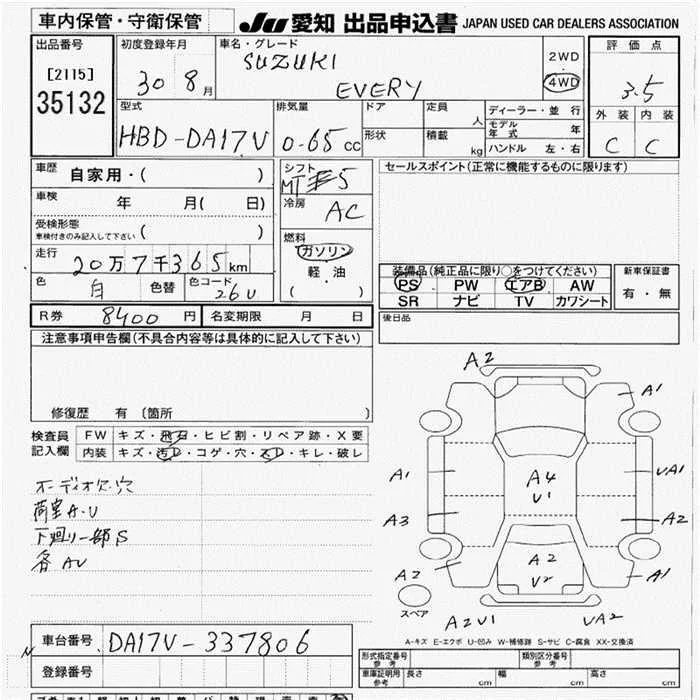 車内保管・守衛保管
JU 愛知 出品申込書 JAPAN USED CAR DEALERS ASSOCIATION
出品番号
[2115]
35132
初度登録年月
30 8月
車名・グレード
SUZUKI
EVERY
2WD
4WD
評価点
3.5
外装 内装
C C
型式
HBD-DA17V
排気量
0.65 cc
ドア
形状
定員 人
積載 kg
ディーラー・並行
モデル年式 年
ハンドル 左・右
車歴 自家用・( )
車検 年 月( 日)
受検形態
車検付きのみ記入して下さい ( )
走行 20万7千365km
色 白 色替 色コード 26U
シフト
MT 5
冷房
AC
燃料
ガソリン
軽・油
( )
セールスポイント(正常に機能するものに限ります)
装備品(純正品に限り○をつけてください)
PS PW エアB AW
SR ナビ TV カワシート
新車保証書
有・無
R券 8400 円 名変期限 月 日
後日品
注意事項申告欄(不具合内容等は具体的に記入して下さい)
修復歴 有 〔箇所 〕
検査員記入欄
FW キズ・飛石・ヒビ割・リペア跡・X要
内装 キズ・汚レ・コゲ・穴・スレ・キレ・破レ
オーディオ欠.穴
荷室A.U
下廻り一部S
各AU
A2
A1
A1
UA1
A4
U1
A3
A2
A2
U2
A2
A1
スペア
A2U1
UA2
A-キズ E-エクボ U-凹み W-補修跡 S-サビ C-腐食 XX-交換済
車台番号 DA17V-337806
登録番号
形式指定番号 参考
類別区分番号 参考
車庫証明用 参考 長さ cm 幅 cm 高さ cm